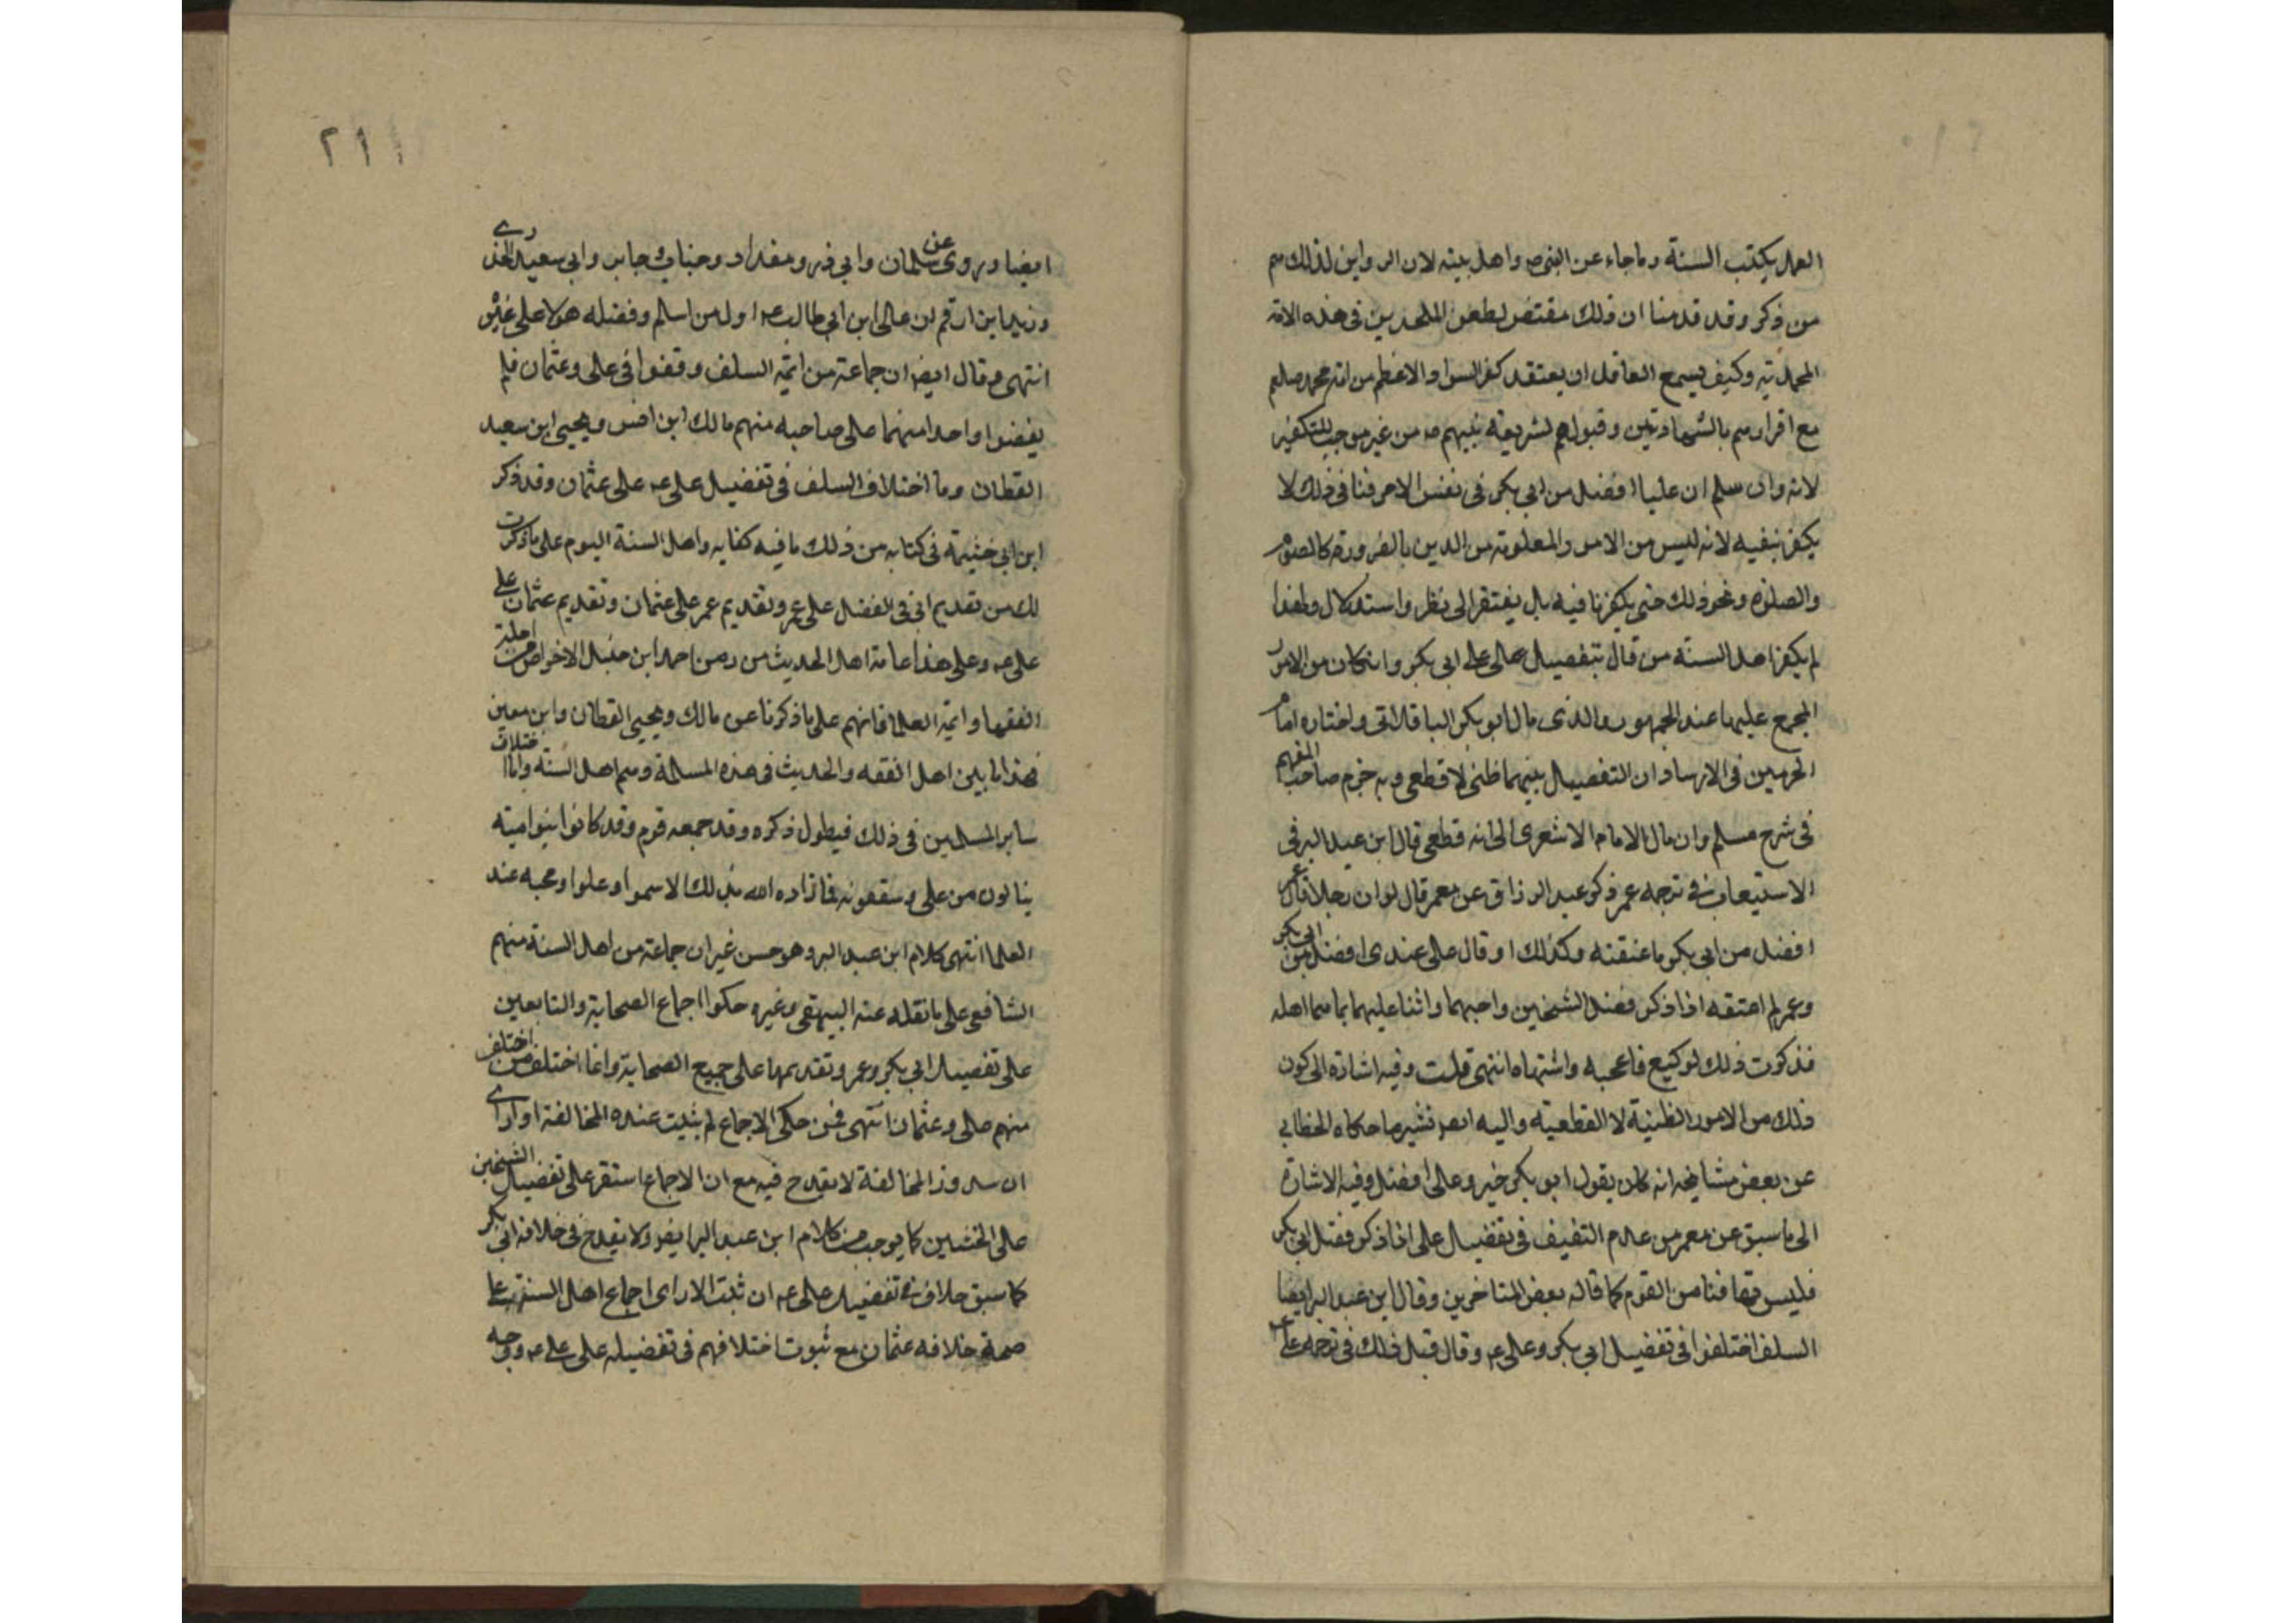 العمل بكتب السنة وما جاء عن النبى ص واهل بيته لان الراوين لذلك هم
من ذكر وقد قدمنا ان ذلك مقتض لطعن الملحدين فى هذه الامة
المحمدية وكيف يسع العاقل ان يعتقد كفر السواد الاعظم من امة محمد صلعم
مع اقرارهم بالشهادتين وقبولهم لشريعة نبيهم ص من غير موجب للتكفير
لانه وان سلم ان عليا افضل من ابى بكر فى نفس الامر فنافى ذلك لا
يكفر بنفيه لانه ليس من الامور المعلومة من الدين بالضرورة كالصوم
والصلوة ونحو ذلك حتى يكفر نافيه بل يفتقر الى نظر واستدلال ولهذا
لم يكفر اهل السنة من قال بتفضيل على على ابى بكر وان كان من الامور
المجمع عليها عند الجمهور والذى مال ابو بكر الباقلانى واختاره امام
الحرمين فى الارشاد ان التفضيل بينهما ظنى لا قطعى وبه جزم صاحب المفهم
فى شرح مسلم وان مال الامام الاشعرى الى انه قطعى قال ابن عبد البر فى
الاستيعاب فى ترجمه عمر ذكر عبد الرزاق عن معمر قال لو ان رجلا قال عمر
افضل من ابى بكر ما عنفته وكذلك لو قال على عندى افضل من ابى بكر
وعمر لم اعنفه اذا ذكر فضل الشيخين واحبهما واثنا عليهما بما هما اهله
فذكرت ذلك لوكيع فاعجبه واشتهاه انتهى قلت وفيه اشارة الى كون
ذلك من الامور الظنية لا القطعية واليه ايضا تشير ما حكاه الخطابي
عن بعض مشايخه انه كان يقول ابو بكر خير وعلى افضل وفيه الاشارة
الى ما سبق عن معمر من عدم التعنيف فى تفضيل على اذا ذكر فضل ابى بكر
فليس تهافتا من القوم كما قاله بعض المتاخرين وقال ابن عبد البر ايضا
السلف اختلفوا فى تفضيل ابى بكر وعلى ع وقال قبل ذلك فى ترجمه على
٢١١
ايضا وروى عن سلمان وابى ذر ومقداد وخباب وجابر وابى سعيد الخدرى
وزيد ابن ارقم ان على ابن ابى طالب ع اول من اسلم وفضله هولا على غيره
انتهى وقال ايضا ان جماعة من ائمة السلف وقفوا فى على وعثمان فلم
يفضلوا واحدا منهما على صاحبه منهم مالك ابن انس ويحيى ابن سعيد
القطان وما اختلاف السلف فى تفضيل على ع على عثمان وقد ذكر
ابن ابى خثيمة فى كتابه من ذلك ما فيه كفايه واهل السنة اليوم على ما ذكرت
لك من تقديم ابى فى الفضل على عمر وتقديم عمر على عثمان وتقديم عثمان على
على ع وعلى هذا عامة اهل الحديث من زمن احمد ابن حنبل الا خواص من اجلة
الفقها وائمة العلما فانهم على ما ذكرنا عن مالك ويحيى القطان وابن معين
فهذا ما بين اهل الفقه والحديث فى هذه المسالة وهم اهل السنة واما اختلاف
ساير المسلمين فى ذلك فيطول ذكره وقد جمعه قوم وقد كانوا بنوا امية
ينالون من على وينتقصونه فما زاده الله بذلك الا سموا وعلوا ومحبه عند
العلما انتهى كلام ابن عبد البر وهو حسن غير ان جماعة من اهل السنة منهم
الشافعى على ما نقله عنه البيهقى وغيره حكوا اجماع الصحابة والتابعين
على تفضيل ابى بكر وعمر وتقديمهما على جميع الصحابة وانما اختلف من اختلف
منهم على وعثمان انتهى فمن حكى الاجماع لم يثبت عنده المخالفة او اراى
ان شذوذ المخالفة لا يقدح فيه مع ان الاجماع استقر على تفضيل الشيخين
على الختنين كما يوجب من كلام ابن عبد البر ايضا ولا يقدح فى خلافه ابى بكر
كما سبق خلاف فى تفضيل على ع ان ثبت الا راى اجماع اهل السنة على
صحة خلافه عثمان مع ثبوت اختلافهم فى تفضيله على على ع وجه